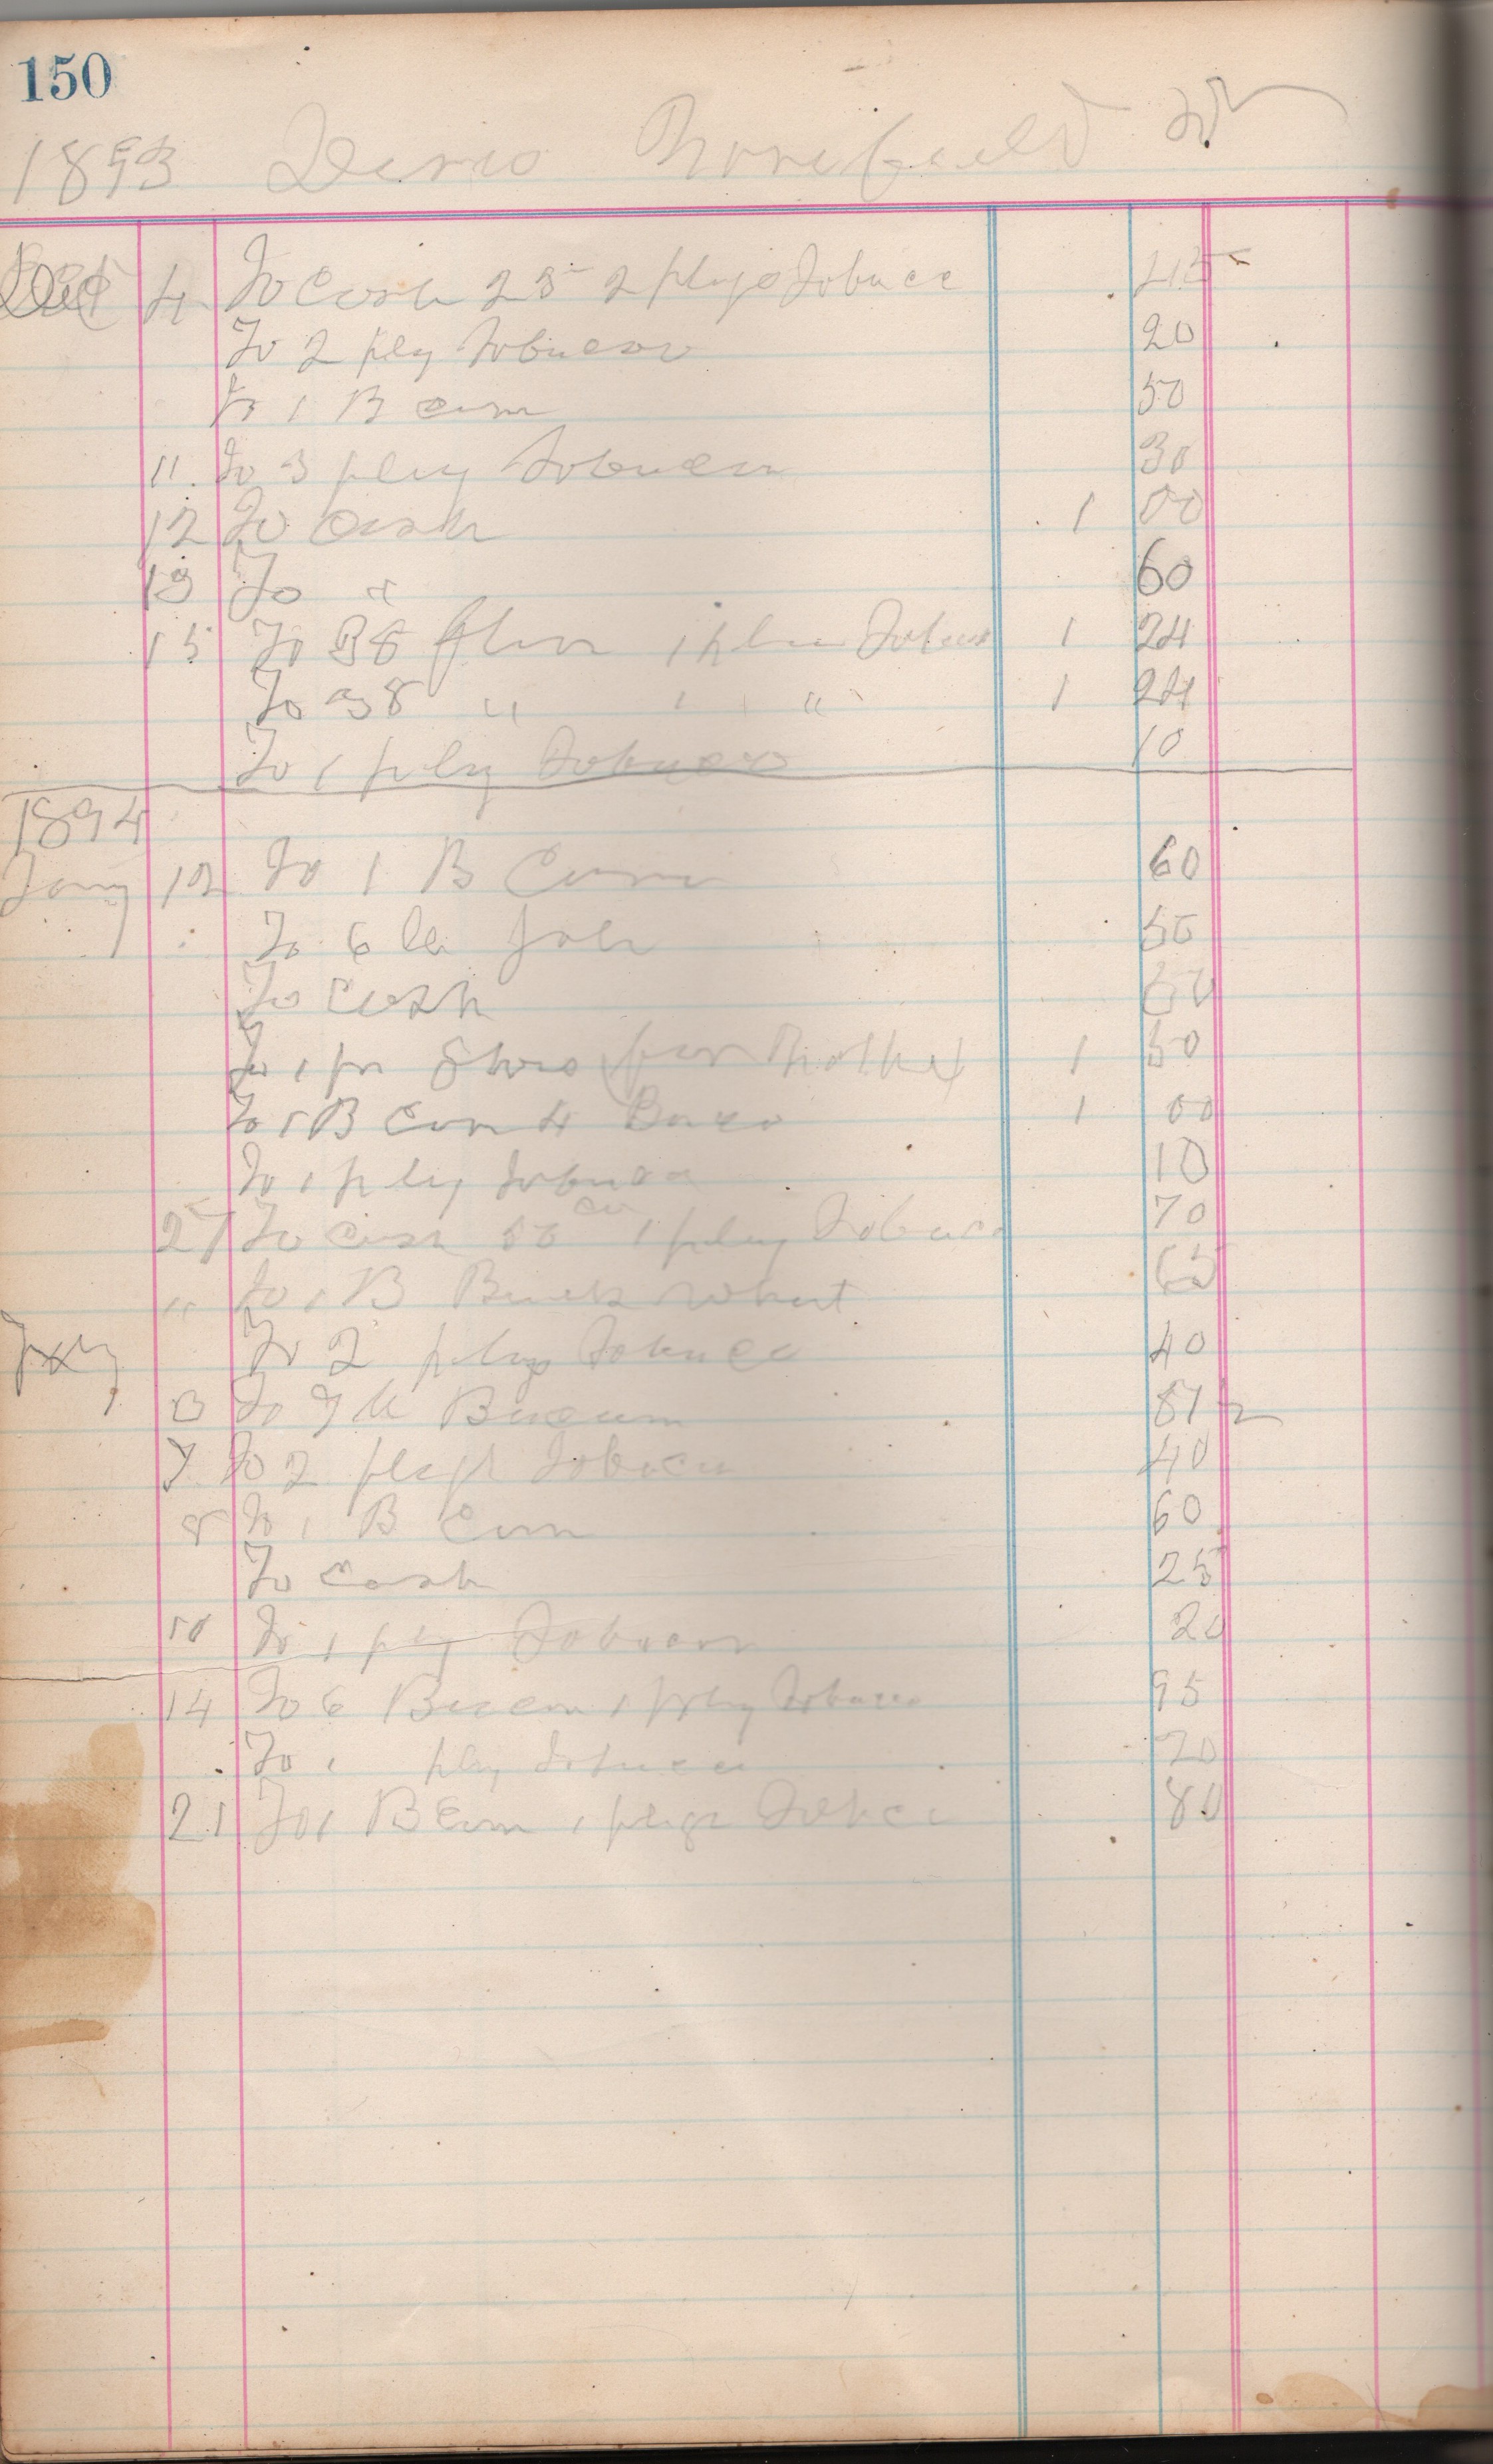 150
1893
Dec 4 To Cash 25 2 plugs Tobacc 45
To 2 plug Tobacco 20
to 1 B corn 50
11 To 3 plug Tobacco 30
12 To cash 1 00
13 To " 60
15 To 38 flour 1 plug Tobacco 1 24
To 38 " 1 " 1 24
To 1 plug Tobacco 10
1894
Jany 12 To 1 B Corn 60
To 6 lb 50
To cash 50
To 1 pr Shoes for Mother 1 50
To 1 B Corn 4 1 00
To 1 plug Tobacco 10
27 To cash 50 cts 1 plug Tobacco 70
" to 1 B Buck wheat 65
To 2 plugs Tobacco 40
3 To 7 lb Bacon 87 ½
7 To 2 plugs Tobacco 40
8 To 1 B Corn 60
To Cash 25
10 To 1 plug Tobacco 20
14 To 6 Bacon 1 plug Tobacco 95
To 1 plug Tobacco 20
21 To 1 B Corn 1 plug Tobacc 80